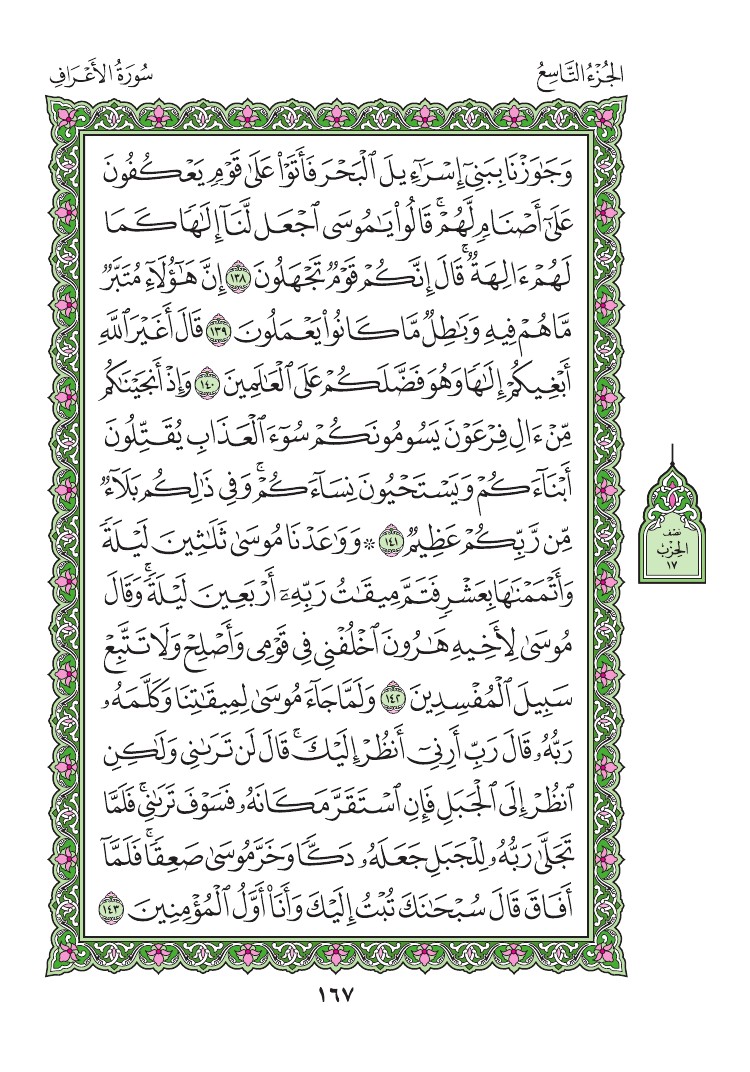 الجُزْءُ التَّاسِعُ
سُورَةُ الأَعْرَافِ
وَجَٰوَزْنَا بِبَنِيٓ إِسْرَٰٓءِيلَ ٱلْبَحْرَ فَأَتَوْاْ عَلَىٰ قَوْمٖ يَعْكُفُونَ
عَلَىٰٓ أَصْنَامٖ لَّهُمْۚ قَالُواْ يَٰمُوسَى ٱجْعَل لَّنَآ إِلَٰهٗا كَمَا
لَهُمْ ءَالِهَةٞۚ قَالَ إِنَّكُمْ قَوْمٞ تَجْهَلُونَ ١٣٨ إِنَّ هَٰٓؤُلَآءِ مُتَبَّرٞ
مَّا هُمْ فِيهِ وَبَٰطِلٞ مَّا كَانُواْ يَعْمَلُونَ ١٣٩ قَالَ أَغَيْرَ ٱللَّهِ
أَبْغِيكُمْ إِلَٰهٗا وَهُوَ فَضَّلَكُمْ عَلَى ٱلْعَٰلَمِينَ ١٤٠ وَإِذْ أَنجَيْنَٰكُم
مِّنْ ءَالِ فِرْعَوْنَ يَسُومُونَكُمْ سُوٓءَ ٱلْعَذَابِ يُقَتِّلُونَ
أَبْنَآءَكُمْ وَيَسْتَحْيُونَ نِسَآءَكُمْۚ وَفِي ذَٰلِكُم بَلَآءٞ
مِّن رَّبِّكُمْ عَظِيمٞ ١٤١ ۞ وَوَٰعَدْنَا مُوسَىٰ ثَلَٰثِينَ لَيْلَةٗ
وَأَتْمَمْنَٰهَا بِعَشْرٖ فَتَمَّ مِيقَٰتُ رَبِّهِۦٓ أَرْبَعِينَ لَيْلَةٗۚ وَقَالَ
مُوسَىٰ لِأَخِيهِ هَٰرُونَ ٱخْلُفْنِي فِي قَوْمِي وَأَصْلِحْ وَلَا تَتَّبِعْ
سَبِيلَ ٱلْمُفْسِدِينَ ١٤٢ وَلَمَّا جَآءَ مُوسَىٰ لِمِيقَٰتِنَا وَكَلَّمَهُۥ
رَبُّهُۥ قَالَ رَبِّ أَرِنِيٓ أَنظُرْ إِلَيْكَۚ قَالَ لَن تَرَىٰنِي وَلَٰكِنِ
ٱنظُرْ إِلَى ٱلْجَبَلِ فَإِنِ ٱسْتَقَرَّ مَكَانَهُۥ فَسَوْفَ تَرَىٰنِيۚ فَلَمَّا
تَجَلَّىٰ رَبُّهُۥ لِلْجَبَلِ جَعَلَهُۥ دَكّٗا وَخَرَّ مُوسَىٰ صَعِقٗاۚ فَلَمَّآ
أَفَاقَ قَالَ سُبْحَٰنَكَ تُبْتُ إِلَيْكَ وَأَنَا۠ أَوَّلُ ٱلْمُؤْمِنِينَ ١٤٣
نصف
الحزب
١٧
١٦٧